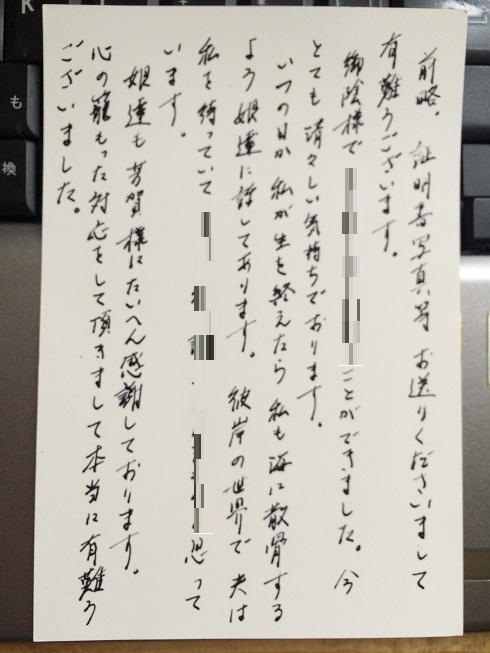 前略。証明書写真等お送りくださいまして
有難うございます。
御陰様で
ことができました。今
とても清々しい気持ちでおります。
いつの日か私が生を終えたら私も海に散骨する
よう娘達に話してあります。彼岸の世界で夫は
私を待っていて
思って
います。
娘達も芳賀様にたいへん感謝しております。
心の籠もった対応をして頂きまして本当に有難う
ございました。
K
も
換